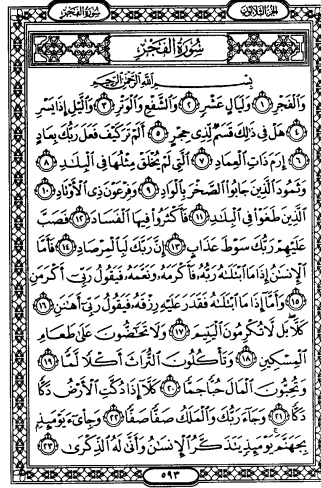 الجزء الثلاثون
سورة الفجر
سُورَةُ الْفَجْرِ
بِسْمِ اللَّهِ الرَّحْمَٰنِ الرَّحِيمِ
وَالْفَجْرِ ١ وَلَيَالٍ عَشْرٍ ٢ وَالشَّفْعِ وَالْوَتْرِ ٣ وَاللَّيْلِ إِذَا يَسْرِ
٤ هَلْ فِي ذَٰلِكَ قَسَمٌ لِذِي حِجْرٍ ٥ أَلَمْ تَرَ كَيْفَ فَعَلَ رَبُّكَ بِعَادٍ
٦ إِرَمَ ذَاتِ الْعِمَادِ ٧ الَّتِي لَمْ يُخْلَقْ مِثْلُهَا فِي الْبِلَادِ ٨
وَثَمُودَ الَّذِينَ جَابُوا الصَّخْرَ بِالْوَادِ ٩ وَفِرْعَوْنَ ذِي الْأَوْتَادِ ١٠
الَّذِينَ طَغَوْا فِي الْبِلَادِ ١١ فَأَكْثَرُوا فِيهَا الْفَسَادَ ١٢ فَصَبَّ
عَلَيْهِمْ رَبُّكَ سَوْطَ عَذَابٍ ١٣ إِنَّ رَبَّكَ لَبِالْمِرْصَادِ ١٤ فَأَمَّا
الْإِنسَانُ إِذَا مَا ابْتَلَاهُ رَبُّهُ فَأَكْرَمَهُ وَنَعَّمَهُ فَيَقُولُ رَبِّي أَكْرَمَنِ
١٥ وَأَمَّا إِذَا مَا ابْتَلَاهُ فَقَدَرَ عَلَيْهِ رِزْقَهُ فَيَقُولُ رَبِّي أَهَانَنِ ١٦
كَلَّا بَل لَّا تُكْرِمُونَ الْيَتِيمَ ١٧ وَلَا تَحَاضُّونَ عَلَىٰ طَعَامِ
الْمِسْكِينِ ١٨ وَتَأْكُلُونَ التُّرَاثَ أَكْلًا لَّمًّا ١٩
وَتُحِبُّونَ الْمَالَ حُبًّا جَمًّا ٢٠ كَلَّا إِذَا دُكَّتِ الْأَرْضُ دَكًّا
دَكًّا ٢١ وَجَاءَ رَبُّكَ وَالْمَلَكُ صَفًّا صَفًّا ٢٢ وَجِايءَ يَوْمَئِذٍ
بِجَهَنَّمَ يَوْمَئِذٍ يَتَذَكَّرُ الْإِنسَانُ وَأَنَّىٰ لَهُ الذِّكْرَىٰ ٢٣
٥٩٣